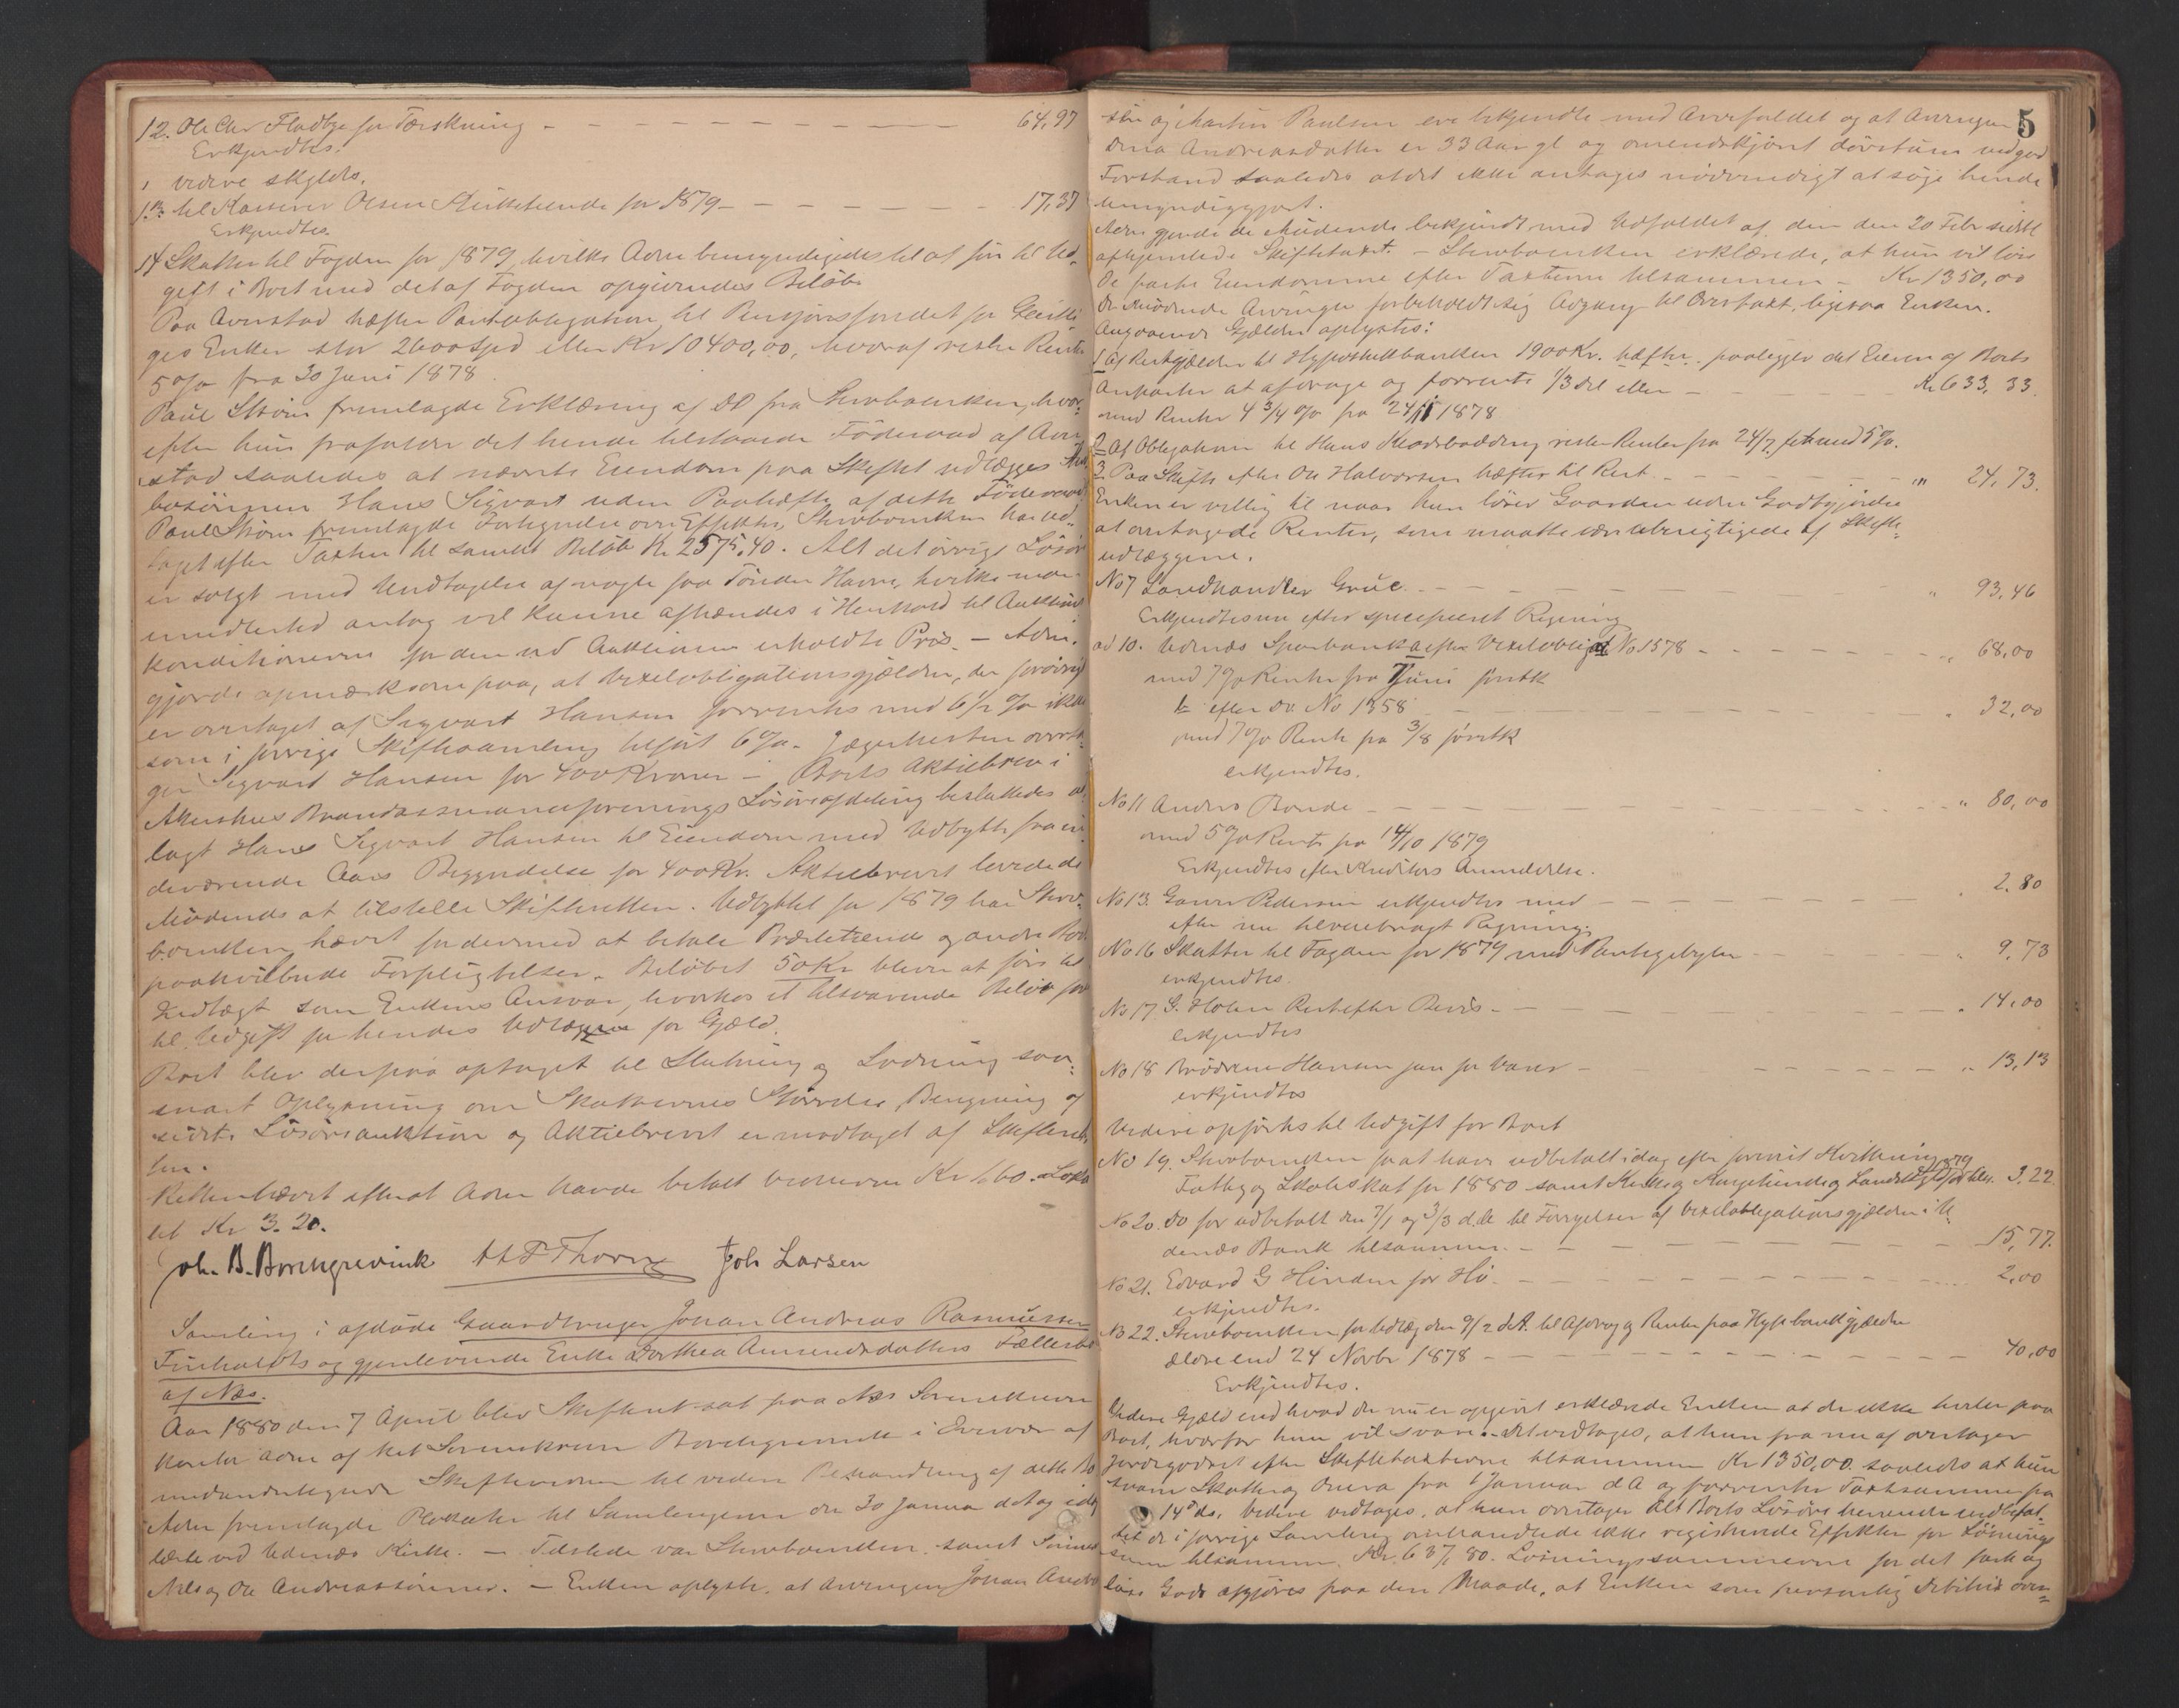 12. Ole Chr Fladbye for Tærskning - 64,97
Erkjendtes.
videre skyldes.
13. til Kasserer Olsen Kirketiende for 1879 - 17,37
Erkjendtes.
14 Skatter til Fogden for 1879, hvilke Adm bemyndigedes til at före til Ud-
gift i Boet med det af Fogden opgivendes Belöb.
Paa Avnstad hæfter Pantobligation til Pensjonsfondet for Geistli
ges Enker stor 2600 Spd eller Kr 10400,00, hvoraf rester Rente
5 o/o fra 30 Juni 1878
Paul Ström fremlagde Erklæring af DD fra Stervboenken, hvor-
efter hun frafalder det hende tilstaaede Föderaad af Avn
stad saaledes at nævnte Eiendom paa Skiftet udlægges
Hans Sigvart uden Paahæfte af dette Föderaad
Paul Ström fremlagde Fortegnelse over Effekter, Stervboenken har ud-
taget efter Taxten til samlet Belöb Kr 2575,40. Alt det övrige Lösör
er solgt med Undtagelse af nogle faa Tönder Havre, hvilke man
imidlertid antog vil kunne afhændes i Henhold til Auktions
konditionerne for den ved Auktionen erholdte Pris. - Adm.
gjorde opmærksom paa, at Vexelobligationsgjælden, der forövrigt
er overtaget af Sigvart Hansen forrentes med 6½ o/o ikke
som i forrige Skiftesamling tilfört 6 o/o. Jægerhesten overta-
ger Sigvart Hansen for 400 Kroner - Boets Aktiebrev i
Akershus Brandassuranceforenings Lösöreafdeling besluttedes ud-
lagt Hans Sigvart Hansen til Eiendom med Udbytte fra in-
deværende Aars Begyndelse for 400 Kr. Aktiebrevet lovede de
Mödende at tilstille Skifteretten. Udbyttet for 1879 har Sterv-
boenken hævet for dermed at betale Præstetiende og andre Boet
paahvilende Forpligtelser. Belöbet 50 Kr bliver at före til
Indtægt som Enkens Ansvar, hvorhos et tilsvarende Belöb före
til Udgift for hendes Udlæg for Gjæld.
Boet blev derpaa optaget til Slutning og Lodning saa-
snart Oplysning om Skatternes Störrelse, Beregning af
sidste Lösöreauktion og Aktiebrevet er modtaget af Skifteret-
ten.
Retten hævet efterat Adm havde betalt Vidnerne Kr 1,60.
tet Kr 3.20.
Joh. B. Borchgrevink H F Thorn Joh Larsen
Samling i afdöde Gaardbruger Johan Andreas Rasmussen
Finholdts og gjenlevende Enke Dorthea Amundsdatters Fællesbo
af Næs.
Aar 1880 den 7 April blev Skifteret sat paa Næs Sorenskriver
kontor adm af kst Sorenskriver Borchgrevink i Overvær af
medundertegnede Skiftevidner til videre Behandling af dette Bo
Adm fremlagde Plakater til Samlingerne den 30 Januar d A og idag
læste ved Udenæs Kirke. - Tilstede var Stervboenken samt Sönnerne
Nils og Ole Andreassönner. - Enken oplyste, at Arvingen Johan Andreas
5
sen og Martin Paulsen ere bekjendte med Arvefaldet og at Arvingen
Dina Andreasdatter er 33 Aar gl og omendskjönt dövstum ved god
Forstand saaledes at det ikke antages nödvendigt at söge hende
umyndiggjort.
Adm gjorde de Mödende bekjendt med Udfaldet af den den 20 Febr sidstl
afhjemlede Skiftetaxt. - Stervboenken erklærede, at hun vil löse
De faste Eiendomme efter Taxterne tilsammen - Kr 1350,00
De mödende Arvinger forbeholdt sig Adgang til Overtaxt, ligesaa Enken.
Angaaende Gjælden oplystes:
1 Af Restgjælden til Hypothekbanken 1900 Kr. hæfter paalegges det Eieren af Boets
Anparter at afdrage og forrente 1/3 Del eller - Kr 633,33.
med Renter 4 3/4 o/o fra 24/11 1878
2 Af Obligation til Hans rester Renter fra 24/7 med 5 o/o.
3 Paa Skifte efter Ole Halvorsen hæfter til Rest - " 24,73.
Enken er villig til naar hun löser Gaarden uden Godtgjörelse
at overtagede Renter, som maatte være uberigtigede af Skifte-
udlæggene.
No 7 Landhandler Grue - " 93,46
Erkjendtes nu efter specificeret Regning
ad 10. Udenæs Sparebank a efter Vexelobligat No 1578 - " 68,00
med 7 o/o Renter fra Juni förstk
b efter do No 1358 - " 32,00
med 7 o/o Rente fra 3/8 förstk
erkjendtes.
No 11 Anders Bonde - " 80,00
med 5 o/o Rente fra 14/10 1879
Erkjendtes efter Kreditors Anmeldelse.
No 13. Gaver Pedersen erkjendtes med - 2.80
efter nu tilveiebragt Regning.
No 16 Skatter til Fogden for 1879 med Pantegebyr - " 9,73
erkjendtes.
No 17 G. Holm Rest efter Bevis - " 14,00
erkjendtes
No 18 Brödrene Hansen jun for Varer - " 13,13
erkjendtes
Videre opförtes til Udgift for Boet
No 19. Stervboenken for at have udbetalt idag efter forevist Kvittering
Fattig og Skoleskat for 1880 samt Kirke og 3.22
No 20. Do for udbetalt den 7/1 og 3/3 d. A. til Fornyelser af Vexelobligationsgjælden i U-
denæs Bank tilsammen - 15,77.
No 21. Edvard G Hinden for Hö - 2,00
erkjendtes.
No 22. Stervboenken for Udlæg den 9/2 d. A. til Afdrag og Renter paa Hypbankgjælden
ældre end 24 Novbr 1878 - 40,00
Erkjendtes.
Videre Gjæld end hvad der nu er opgivet erklærede Enken at der ikke hviler paa
Boet, hvorfor hun vil svare. - Det vedtages, at hun fra nu af overtager
Jordegodset efter Skiftetaxterne tilsammen Kr 1350,00 saaledes at hun
svarer Skatter og Onera fra 1 Januar d A og forrenter Taxtsummen fra
14 ds. Videre vedtages, at hun overtager Alt Boets Lösöre herunder indbefat-
tet de i forrige Samling omhandlede ikke registrerede Effekter for Lösnings
sum tilsammen Kr. 637,80. Lösningssummerne for det faste og
löse Gods afgjöres paa den Maade, at Enken som personlig Debitrix over-